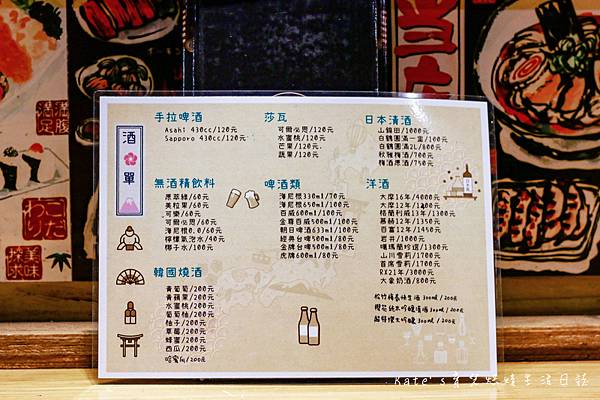 酒單
手拉啤酒
Asahi 430cc/120元
Sapporo 430cc/120元
莎瓦
可爾必思/120元
水蜜桃/120元
芒果/120元
蔬果/120元
日本清酒
白鶴團滿2L/800元
秋雅梅酒/700元
梅酒原酒/750元
無酒精飲料
原萃綠/60元
美粒果/60元
可樂/60元
可爾必思/60元
海尼根0.0/60元
檸檬氣泡水/40元
椰子水/100元
啤酒類
海尼根330ml/70元
海尼根650ml/100元
百威600ml/100元
金尊百威500ml/100元
朝日啤酒633ml/100元
經典台啤500ml/80元
金牌台啤500ml/80元
虎牌600ml/80元
洋酒
大摩16年/4000元
大摩12年/1800元
格蘭利威13年/1300元
慕赫12年/1350元
百富12年/1450元
岩井/1000元
噶瑪蘭珍選/1300元
山川雪莉/1700元
首席雪莉/1700元
RX21年/3000元
大象奶酒/800元
韓國燒酒
青葡萄/200元
青蘋果/200元
水蜜桃/200元
葡萄柚/200元
柚子/200元
草莓/200元
蜂蜜/200元
西瓜/200元
哈蜜瓜/200元
滿腹
滿足
美味
探求